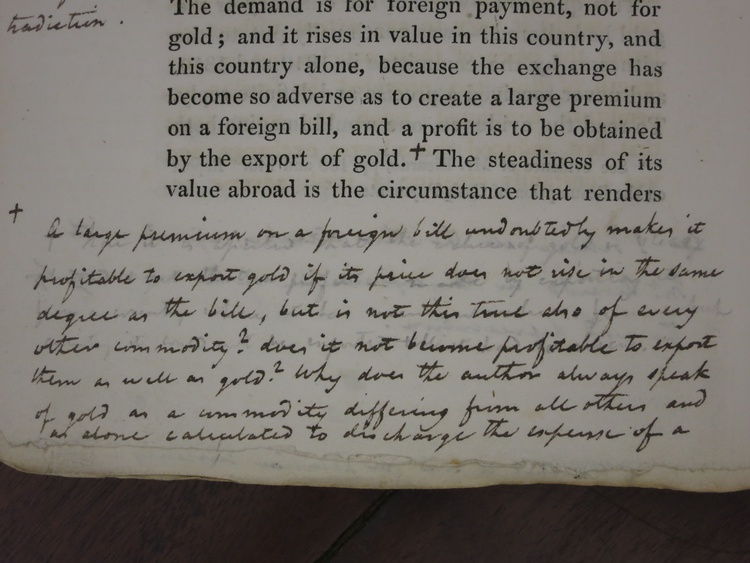 tradiction.
The demand is for foreign payment, not for
gold; and it rises in value in this country, and
this country alone, because the exchange has
become so adverse as to create a large premium
on a foreign bill, and a profit is to be obtained
by the export of gold.† The steadiness of its
value abroad is the circumstance that renders
†
A large premium on a foreign bill undoubtedly makes it
profitable to export gold if its price does not rise in the same
degree as the bill, but is not this true also of every
other commodity? does it not become profitable to export
them as well as gold? Why does the author always speak
of gold as a commodity differing from all others and
as alone calculated to discharge the expense of a